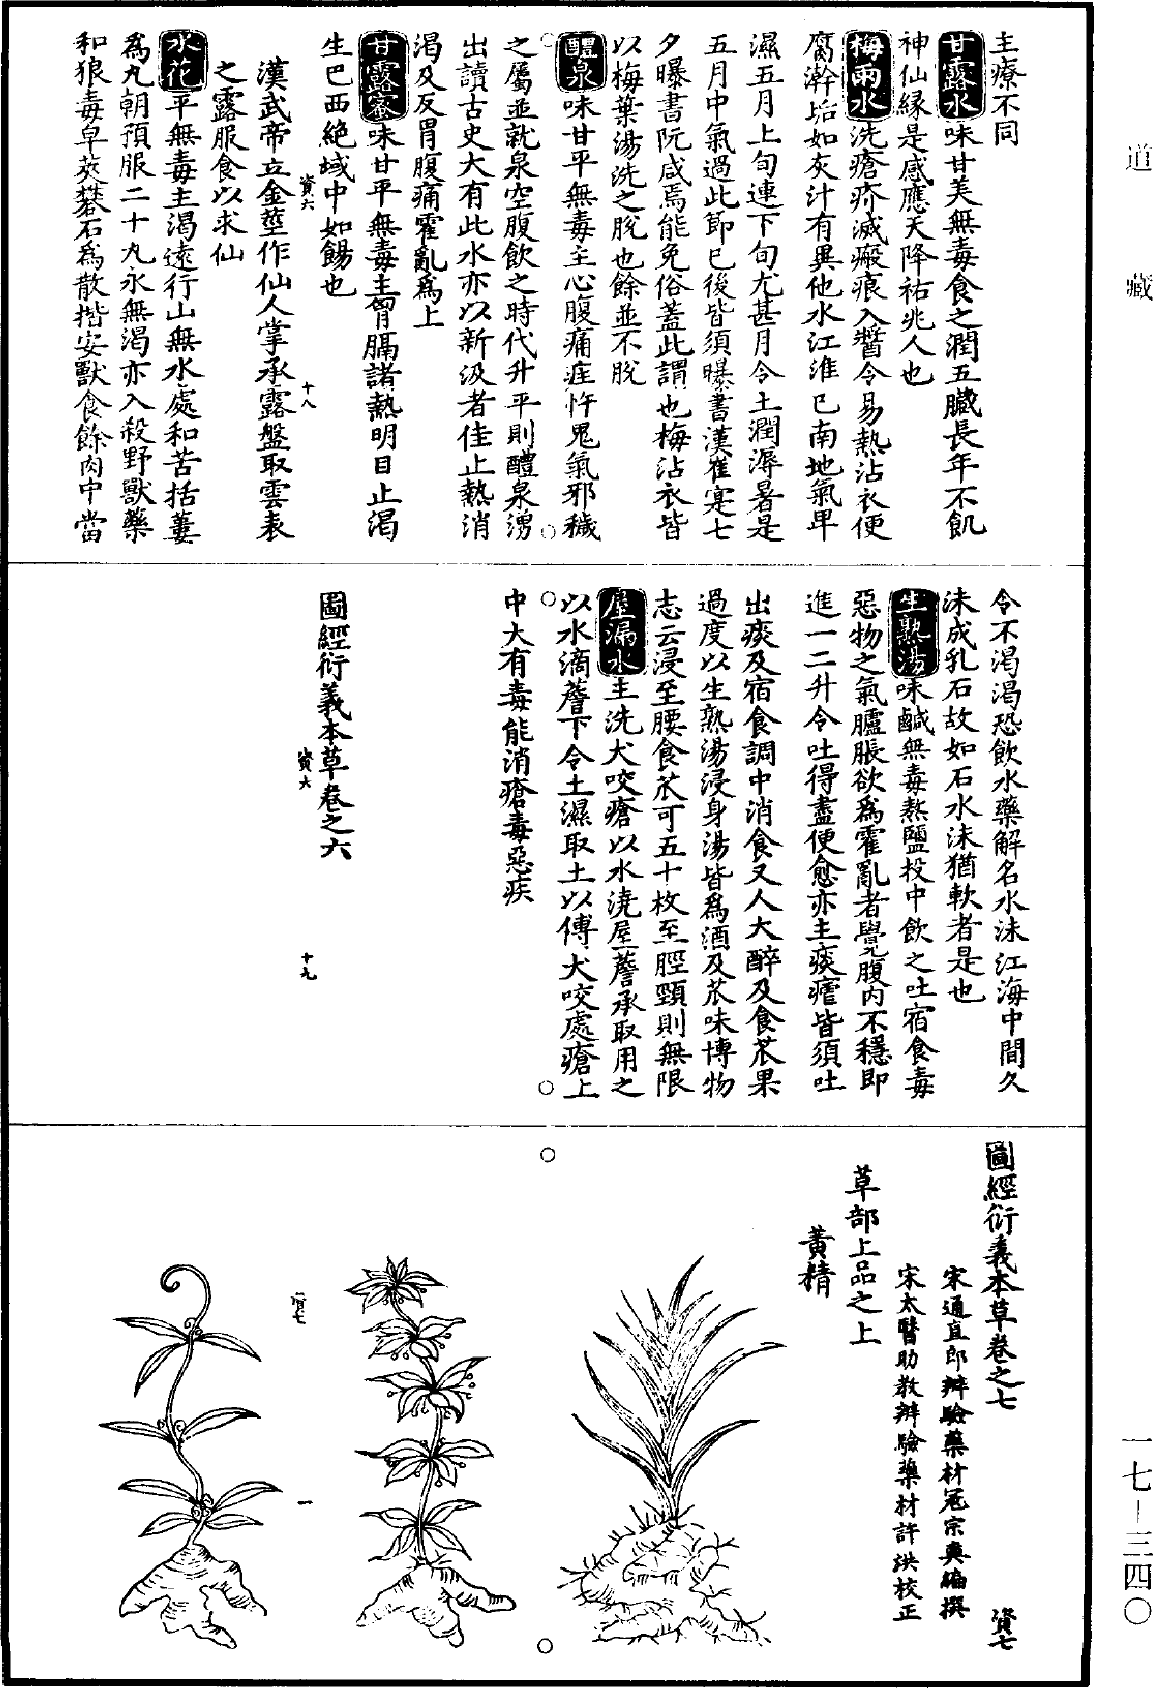 道藏
一七—三四〇
主療不同
甘露水味甘美無毒食之潤五臟長年不飢
神仙緣是感應天降祐兆人也
梅雨水洗瘡疥滅瘢痕入醬令易熟沾衣便
腐澣垢如灰汁有異他水江淮已南地氣卑
濕五月上旬連下旬尤甚月令土潤溽暑是
五月中氣過此節已後皆須曝書漢崔寔七
夕曝書阮咸焉能免俗蓋此謂也梅沾衣皆
以梅葉湯洗之脫也餘並不脫
醴泉味甘平無毒主心腹痛疰忤鬼氣邪穢
之屬並就泉空腹飲之時代升平則醴泉湧
出讀古史大有此水亦以新汲者佳止熱消
渴及反胃腹痛霍亂為上
甘露蜜味甘平無毒主胷膈諸熱明目止渴
生巴西絕域中如餳也
資六
十八
漢武帝立金莖作仙人掌承露盤取雲表
之露服食以求仙
水花平無毒主渴遠行山無水處和苦栝蔞
為丸朝預服二十丸永無渴亦入殺野獸藥
和狼毒皁莢礬石為散揩安獸食餘肉中當
令不渴渴恐飲水藥解名水沫江海中間久
沫成乳石故如石水沫猶軟者是也
生熟湯味鹹無毒熬鹽投中飲之吐宿食毒
惡物之氣臚脹欲為霍亂者覺腹內不穩即
進一二升令吐得盡便愈亦主痰瘧皆須吐
出痰及宿食調中消食又人大醉及食苽果
過度以生熟湯浸身湯皆為酒及苽味博物
志云浸至腰食苽可五十枚至脛頸則無限
屋漏水主洗犬咬瘡以水澆屋簷承取用之
以水滴簷下令土濕取土以傅犬咬處瘡上
中大有毒能消瘡毒惡疾
圖經衍義本草卷之六
資六
十九
圖經衍義本草卷之七
資七
宋通直郎辨驗藥材寇宗奭編撰
宋太醫助教辨驗藥材許洪校正
草部上品之上
黃精
資七
一